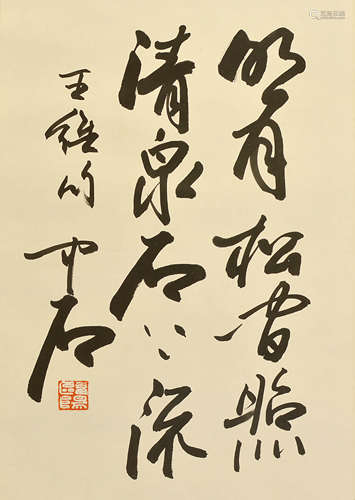 明月松間照
清泉石上流
王維句 中石